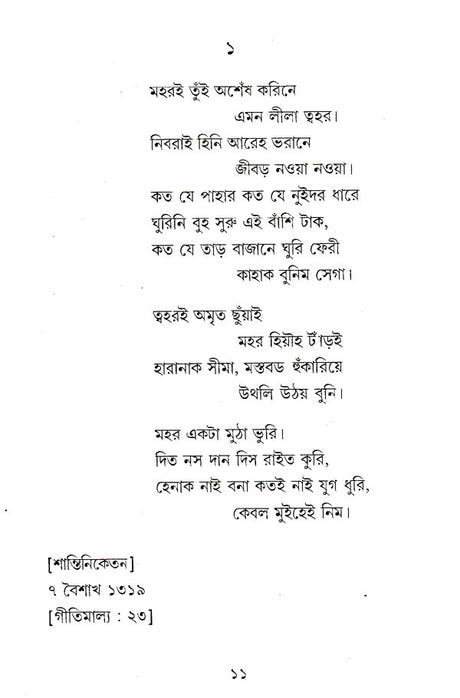 ১
মহরই তুঁই অশেঁষ করিনে
এমন লীলা ত্বহর।
নিবরাই হিনি আরেহ ভরানে
জীবড় নওয়া নওয়া।
কত যে পাহার কত যে নুইদর ধারে
ঘুরিনি বুহ সুরু এই বাঁশি টাক,
কত যে তাড় বাজানে ঘুরি ফেরী
কাহাক বুনিম সেগা।
ত্বহরই অমৃত ছুঁয়াই
মহর হিয়ৗহ টাঁড়ই
হারানাক সীমা, মস্তবড হুঁকারিয়ে
উথলি উঠয় বুনি।
মহর একটা মুঠা ভুরি।
দিত নস দান দিস রাইত কুরি,
হেনাক নাই বনা কতই নাই যুগ ধুরি,
কেবল মুইহেই নিম।
[শান্তিনিকেতন]
৭ বৈশাখ ১৩১৯
[গীতিমাল্য : ২৩]
১১